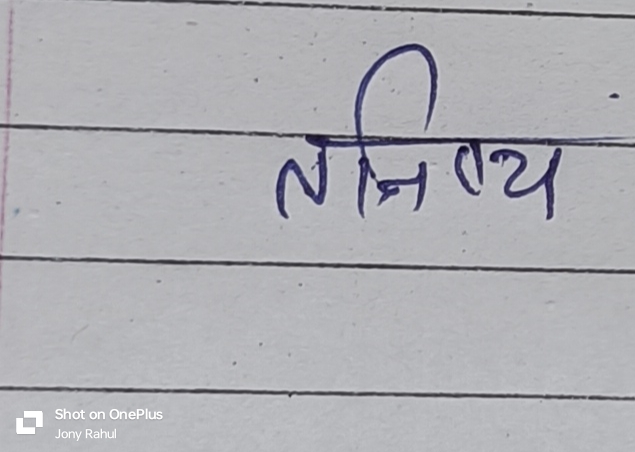 तनिष्य
Shot on OnePlus
Jony Rahul